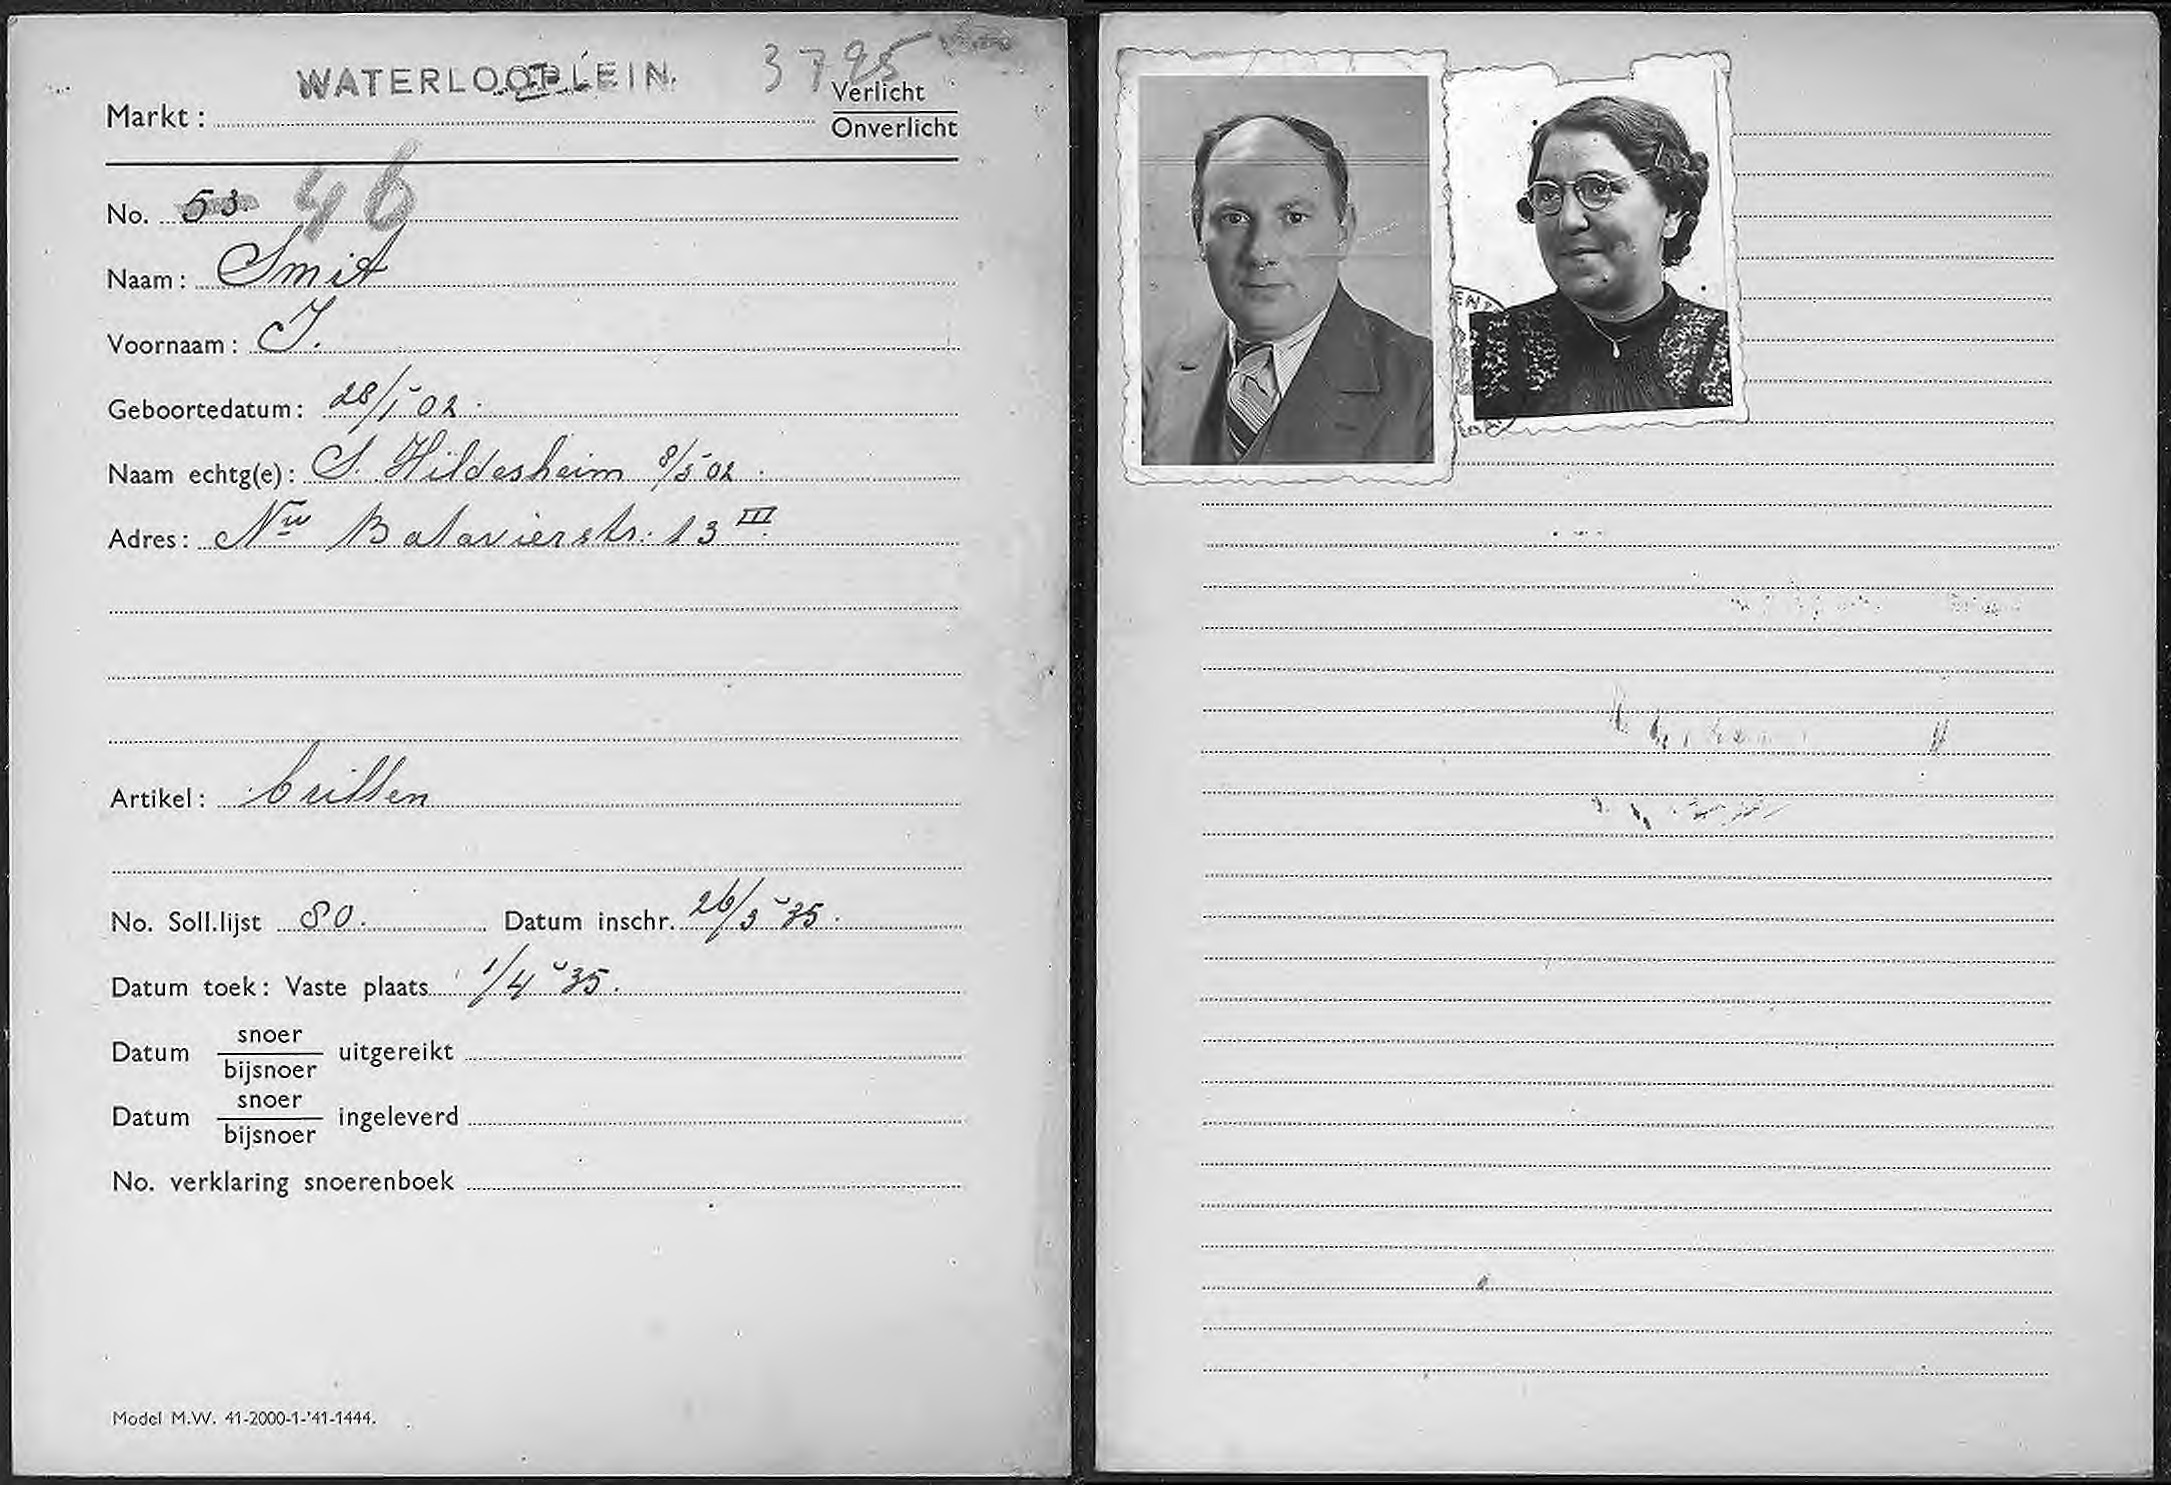 3795
WATERLOOPLEIN.
Markt :
Verlicht
Onverlicht
No. 53. 46
Naam : Smit
Voornaam : I.
Geboortedatum : 28/1 '02.
Naam echtg(e) : S. Hildesheim 8/5 '02.
Adres : Nw Batavierstr. 13 III
Artikel : brillen
No. Soll.lijst 80. Datum inschr. 26/3 '35.
Datum toek : Vaste plaats 1/4 '35.
Datum snoer / bijsnoer uitgereikt
Datum snoer / bijsnoer ingeleverd
No. verklaring snoerenboek
Model M.W. 41-2000-1-'41-1444.